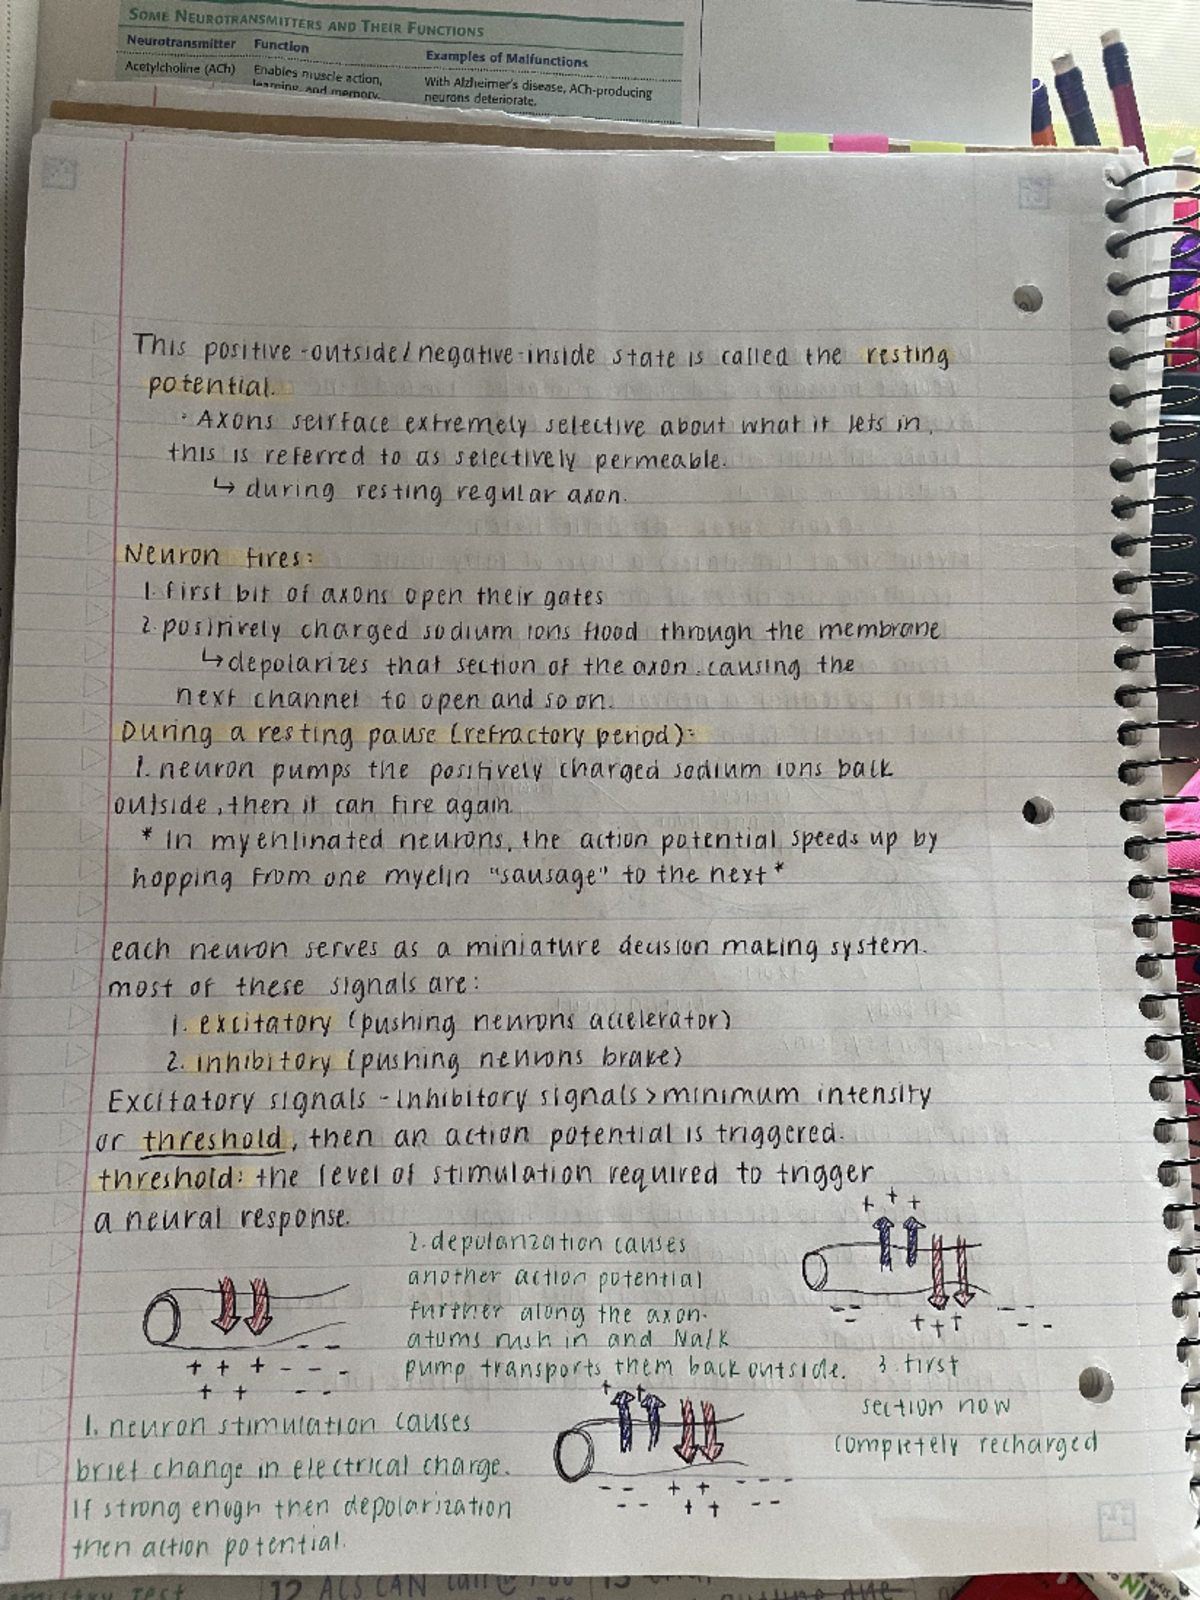 SOME NEUROTRANSMITTERS AND THEIR FUNCTIONS
Neurotransmitter Function Examples of Malfunctions
Acetylcholine (ACh) Enables muscle action, With Alzheimer's disease, ACh-producing
learning, and memory. neurons deteriorate.
This positive-outside/negative-inside state is called the resting
potential.
· Axons seirface extremely selective about what it lets in,
this is referred to as selectively permeable.
↳ during resting regular axon.
Neuron fires:
1. first bit of axons open their gates
2. positively charged sodium ions flood through the membrane
↳ depolarizes that section of the axon. causing the
next channel to open and so on.
During a resting pause (refractory period):
1. neuron pumps the positively charged sodium ions back
outside, then it can fire again.
* In myenlinated neurons, the action potential speeds up by
hopping from one myelin "sausage" to the next *
each neuron serves as a miniature decision making system.
most of these signals are:
1. excitatory (pushing neurons accelerator)
2. inhibitory (pushing neurons brake)
Excitatory signals - inhibitory signals > minimum intensity
or threshold, then an action potential is triggered.
threshold: the level of stimulation required to trigger
a neural response.
+ + + - - -
+ + - -
1. neuron stimulation causes
brief change in electrical charge.
If strong enugh then depolarization
then action potential.
2. depolarization causes
another action potential
further along the axon.
atoms rush in and Na/K
pump transports them back outside.
+ +
- - + + - - -
- - + + - -
+ + +
- - + + + - - - -
3. first
section now
completely recharged
12 ACS CAN